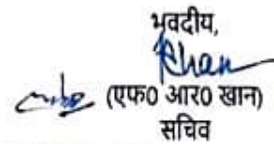 भवदीय,
Khan
(एफ0 आर0 खान)
सचिव